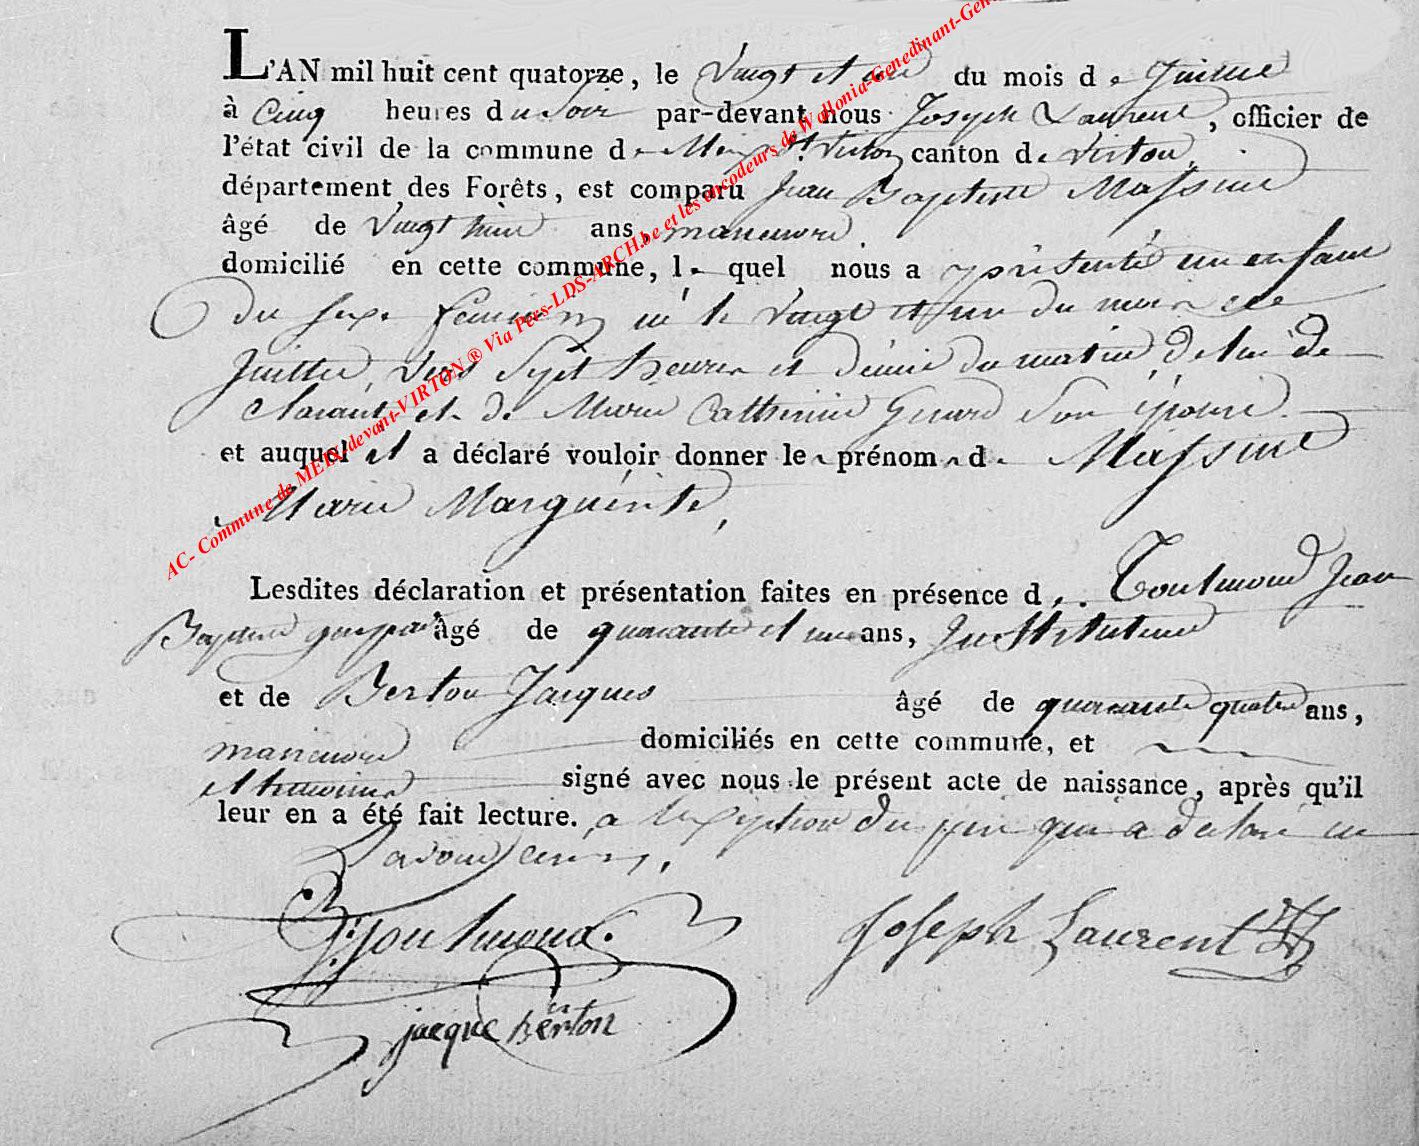 L'AN mil huit cent quatorze, le Vingt et un du mois de Juillet
à Cinq heures du Soir par-devant nous Joseph Laurent, officier de
l'état civil de la commune de Meix dt Virton canton de Virton,
département des Forêts, est comparu Jean Baptiste Massinet
âgé de Vingt huit ans, manœuvre.
domicilié en cette commune, lequel nous a présenté un enfant
Du sexe féminin né le vingt et un du mois de
Juillet, vers Sept heures et demie du matin, de lui dé
clarant et de Marie Catherine Gerard Son épouse
et auquel il a déclaré vouloir donner le prénom de Massinet
Marie Marguerite,
Lesdites déclaration et présentation faites en présence d. Toulmond Jean
Baptiste gaspard âgé de quarante et un ans, Instituteur
et de Berton Jacques âgé de quarante quatre ans,
manœuvre domiciliés en cette commune, et
et témoins signé avec nous le présent acte de naissance, après qu'il
leur en a été fait lecture. a lexception du père qui a declaré ne
savoir écrire,
Toulmond. Joseph Laurent
jacque berton
AC- Commune de MEIX-devant-VIRTON ® Via Pers-LDS-ARCH.be et les encodeurs de Wallonia-Genedinant-Gen